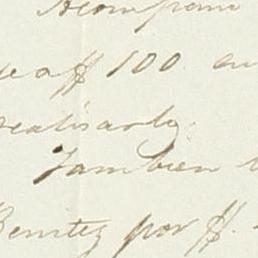 Acompan
de a ff 100. en
realisarlo.
Tambien
Benitez por ff.